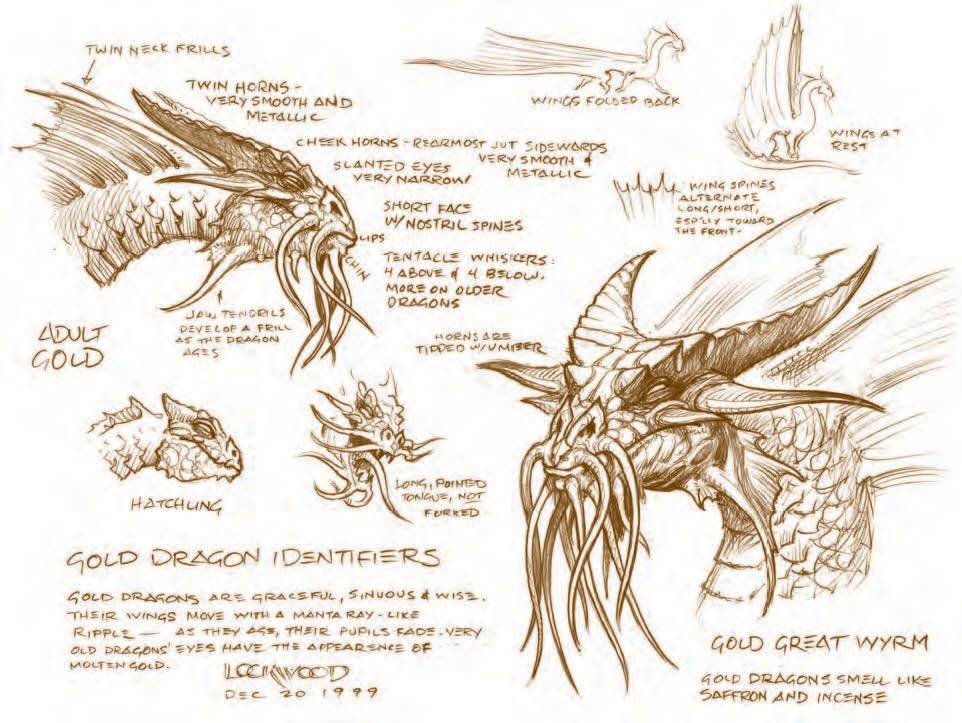 TWIN NECK FRILLS
TWIN HORNS -
VERY SMOOTH AND
METALLIC
CHEEK HORNS - REARMOST JUT SIDEWARDS
VERY SMOOTH &
METALLIC
SLANTED EYES
VERY NARROW!
SHORT FACE
W/NOSTRIL SPINES
LIPS
CHIN
TENTACLE WHISKERS:
4 ABOVE & 4 BELOW.
MORE ON OLDER
DRAGONS
JAW TENDRILS
DEVELOP A FRILL
AS THE DRAGON
AGES
ADULT
GOLD
WINGS FOLDED BACK
WINGS AT
REST
WING SPINES
ALTERNATE
LONG/SHORT,
ESP'LY TOWARD
THE FRONT -
HORNS ARE
TIPPED W/UMBER
HATCHLING
LONG, POINTED
TONGUE, NOT
FORKED
GOLD DRAGON IDENTIFIERS
GOLD DRAGONS ARE GRACEFUL, SINUOUS & WISE.
THEIR WINGS MOVE WITH A MANTA RAY-LIKE
RIPPLE — AS THEY AGE, THEIR PUPILS FADE. VERY
OLD DRAGONS' EYES HAVE THE APPEARANCE OF
MOLTEN GOLD.
LOCKWOOD
DEC 20 1999
GOLD GREAT WYRM
GOLD DRAGONS SMELL LIKE
SAFFRON AND INCENSE